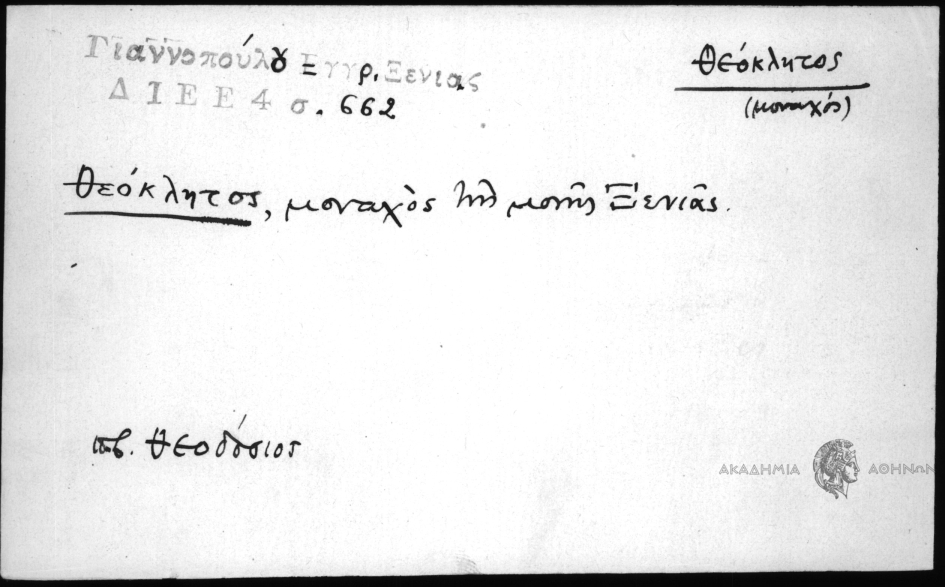 Γιαννοπούλου Ἔγγρ. Ξενιᾶς
ΔΙΕΕ 4 σ. 662
Θεόκλητος
(μοναχός)
Θεόκλητος, μοναχὸς τῆς μονῆς Ξενιᾶς.
πβ. Θεοδόσιος
ΑΚΑΔΗΜΙΑ ΑΘΗΝΩΝ